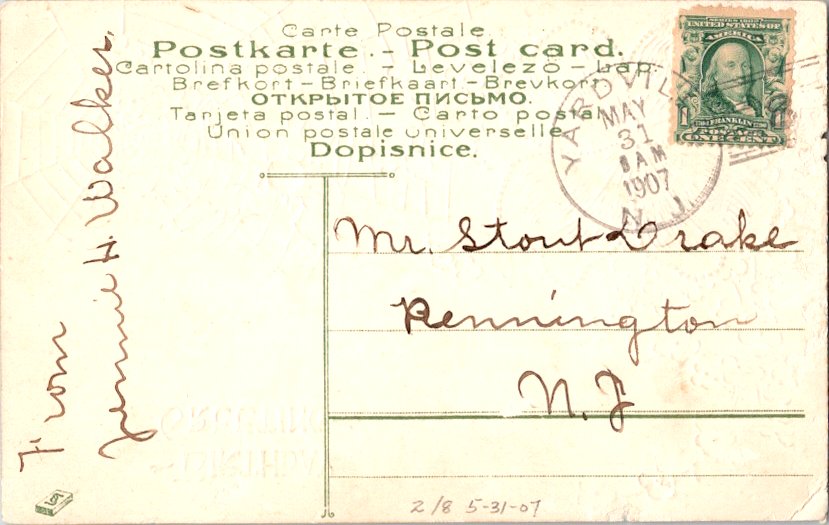 Carte Postale
Postkarte.- Post card.
Cartolina postale. - Levelezö - Lap.
Brefkort - Briefkaart - Brevkort
ОТКРЫТОЕ ПИСЬМО.
Tarjeta postal. - Carto postal
Union postale universelle.
Dopisnice.
SERIES 1902
UNITED STATES OF
AMERICA
FRANKLIN
POSTAGE
1 ONE CENT 1
YARDVILL
MAY
31
8 AM
1907
N.J.
From
Jennie H. Walker.
Mr. Stout Drake
Pennington
N.J
2/8 5-31-07